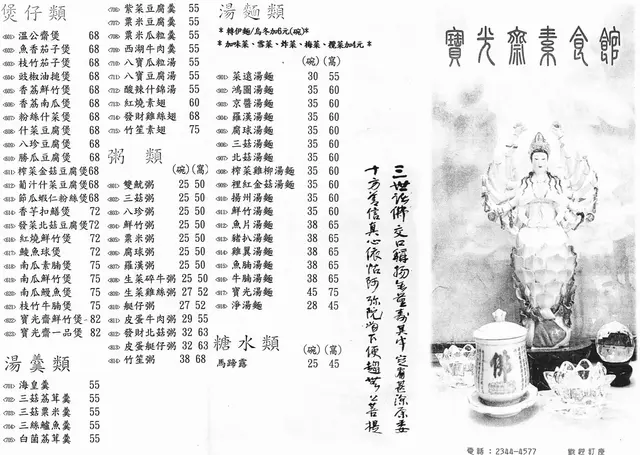 煲仔類
溫公齋煲 68
魚香茄子煲 68
枝竹茄子煲 68
豉椒油揓煲 68
香荔鮮竹煲 68
香荔南瓜煲 68
粉絲什菜煲 68
什菜豆腐煲 68
八珍豆腐煲 68
勝瓜豆腐煲 68
榨菜金菇豆腐煲 68
葡汁什菜豆腐煲 68
節瓜蝦仁粉絲煲 68
香芋扣鱔煲 72
發菜北菇豆腐煲 72
紅燒鮮竹煲 72
鰻魚球煲 72
南瓜素腩煲 75
南瓜鮮竹煲 75
南瓜鰻魚煲 75
枝竹牛腩煲 75
寶光齋鮮竹煲 82
寶光齋一品煲 82
湯羹類
海皇羹 55
三菇荔茸羹 55
三菇粟米羹 55
三絲鱸魚羹 55
白菌荔茸羹 55
紫菜豆腐羹 55
粟米豆腐羹 55
粟米瓜粒羹 55
西湖牛肉羹 55
八寶瓜粒湯 55
八寶豆腐湯 55
酸辣什錦湯 55
紅燒素翅 60
發財雞絲翅 68
竹笙素翅 75
粥類
(碗) (窩)
雙魷粥 25 50
三菇粥 25 50
八珍粥 25 50
鮮竹粥 25 50
粟米粥 25 50
腐球粥 25 50
羅漢粥 25 50
生菜碎牛粥 25 50
生菜雞絲粥 27 52
艇仔粥 27 52
皮蛋牛肉粥 29 55
發財北菇粥 32 63
皮蛋艇仔粥 32 63
竹笙粥 38 68
湯麵類
* 轉伊麵/烏冬加6元(碗) *
* 加味菜、雪菜、炸菜、梅菜、欖菜加4元 *
(碗) (窩)
菜遠湯麵 30 55
鴻圖湯麵 35 60
京醬湯麵 35 60
羅漢湯麵 35 60
腐球湯麵 35 60
三菇湯麵 35 60
北菇湯麵 35 60
榨菜雞柳湯麵 35 60
裡紅金菇湯麵 35 60
揚州湯麵 35 60
鮮竹湯麵 35 60
魚片湯麵 38 65
豬扒湯麵 38 65
雞翼湯麵 38 65
魚腩湯麵 38 65
牛腩湯麵 38 65
寶光湯麵 45 75
淨湯麵 28 45
糖水類
(碗) (窩)
馬蹄露 25 45
寶光齋素食館
佛
電話：2344-4577
歡迎訂座